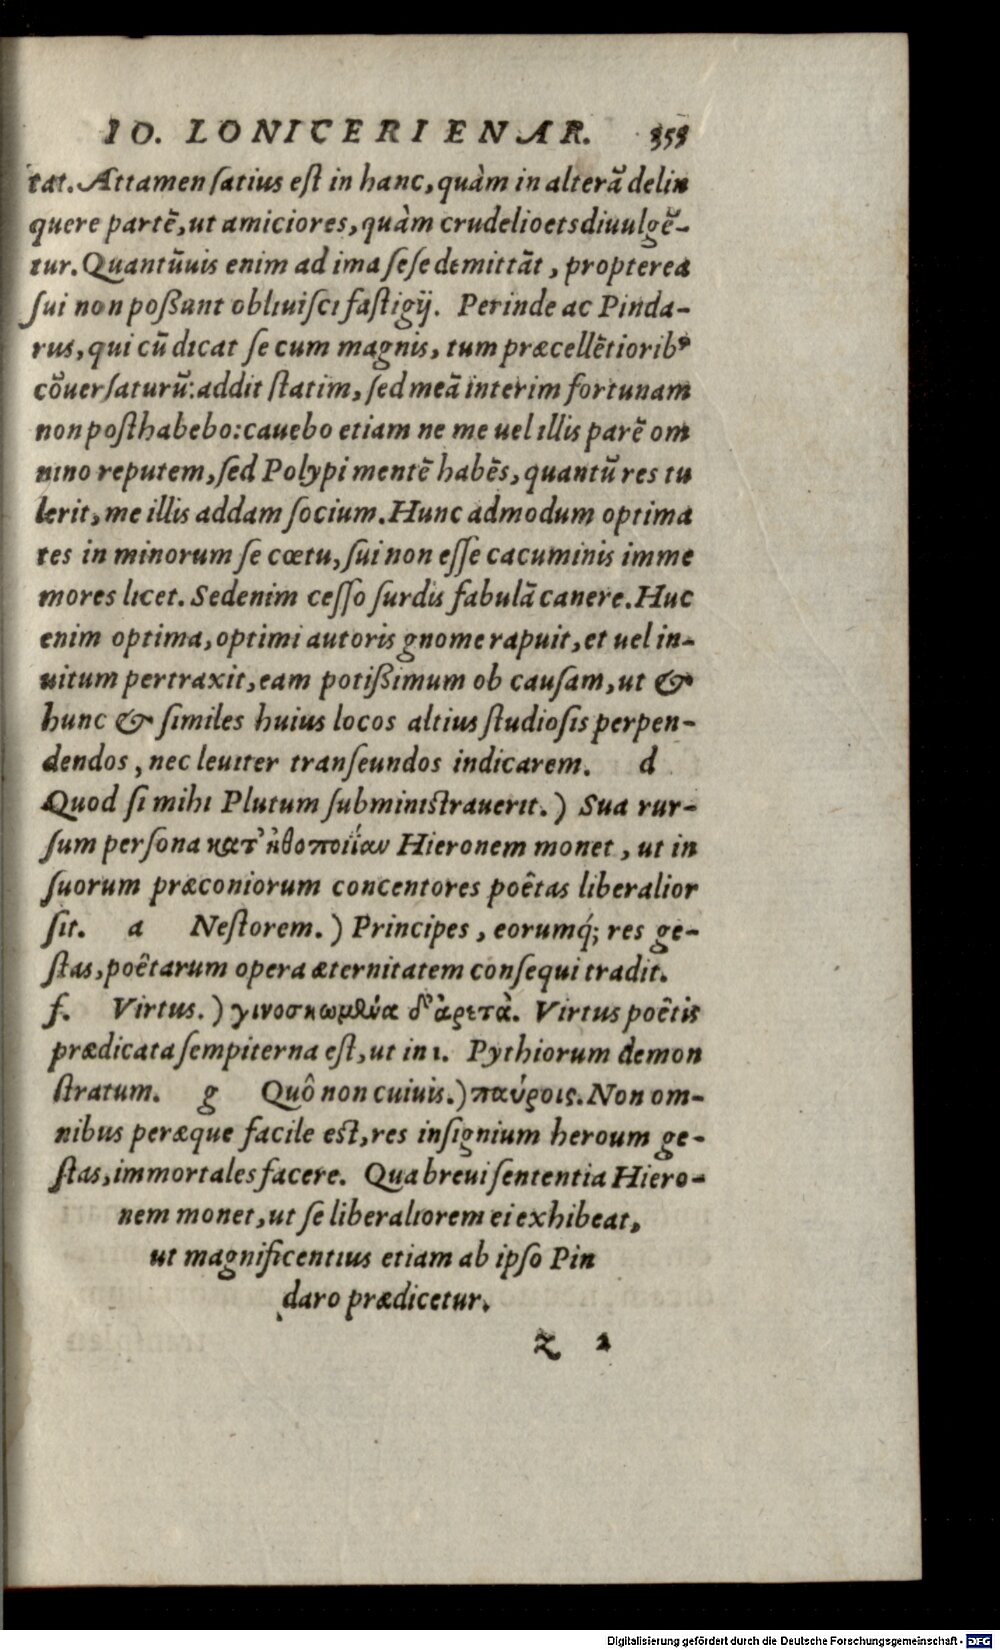 IO. LONICERI ENAR. 353
tat. Attamen ſatius eſt in hanc, quàm in alterā delin
quere partē, ut amiciores, quàm crudelioets diuulgē-
tur. Quantũuis enim ad ima ſeſe demittāt, propterea
ſui non poßunt obliuiſci faſtigij. Perinde ac Pinda-
rus, qui cũ dicat ſe cum magnis, tum præcellētioribꝰ
cõuerſaturũ: addit ſtatim, ſed meā interim fortunam
non poſthabebo: cauebo etiam ne me uel illis parē om
nino reputem, ſed Polypi mentē habēs, quantũ res tu
lerit, me illis addam ſocium. Hunc admodum optima
tes in minorum ſe cœtu, ſui non eſſe cacuminis imme
mores licet. Sedenim ceſſo ſurdis fabulā canere. Huc
enim optima, optimi autoris gnome rapuit, et uel in-
uitum pertraxit, eam potißimum ob cauſam, ut &
hunc & ſimiles huius locos altius ſtudioſis perpen-
dendos, nec leuiter tranſeundos indicarem. d
Quod ſi mihi Plutum ſubminiſtrauerit.) Sua rur-
ſum perſona κατ' ἠθοποιΐαν Hieronem monet, ut in
ſuorum præconiorum concentores poêtas liberalior
ſit. a Neſtorem.) Principes, eorumq́; res ge-
ſtas, poêtarum opera æternitatem conſequi tradit.
f. Virtus.) γινοσκωμθύα δ' ἀρετὰ. Virtus poêtis
prædicata ſempiterna eſt, ut in 1. Pythiorum demon
ſtratum. g Quô non cuiuis.) παύροις. Non om-
nibus peræque facile eſt, res inſignium heroum ge-
ſtas, immortales facere. Qua breui ſententia Hiero-
nem monet, ut ſe liberaliorem ei exhibeat,
ut magnificentius etiam ab ipſo Pin
daro prædicetur.
z 2
Digitalisierung gefördert durch die Deutsche Forschungsgemeinschaft - DFG